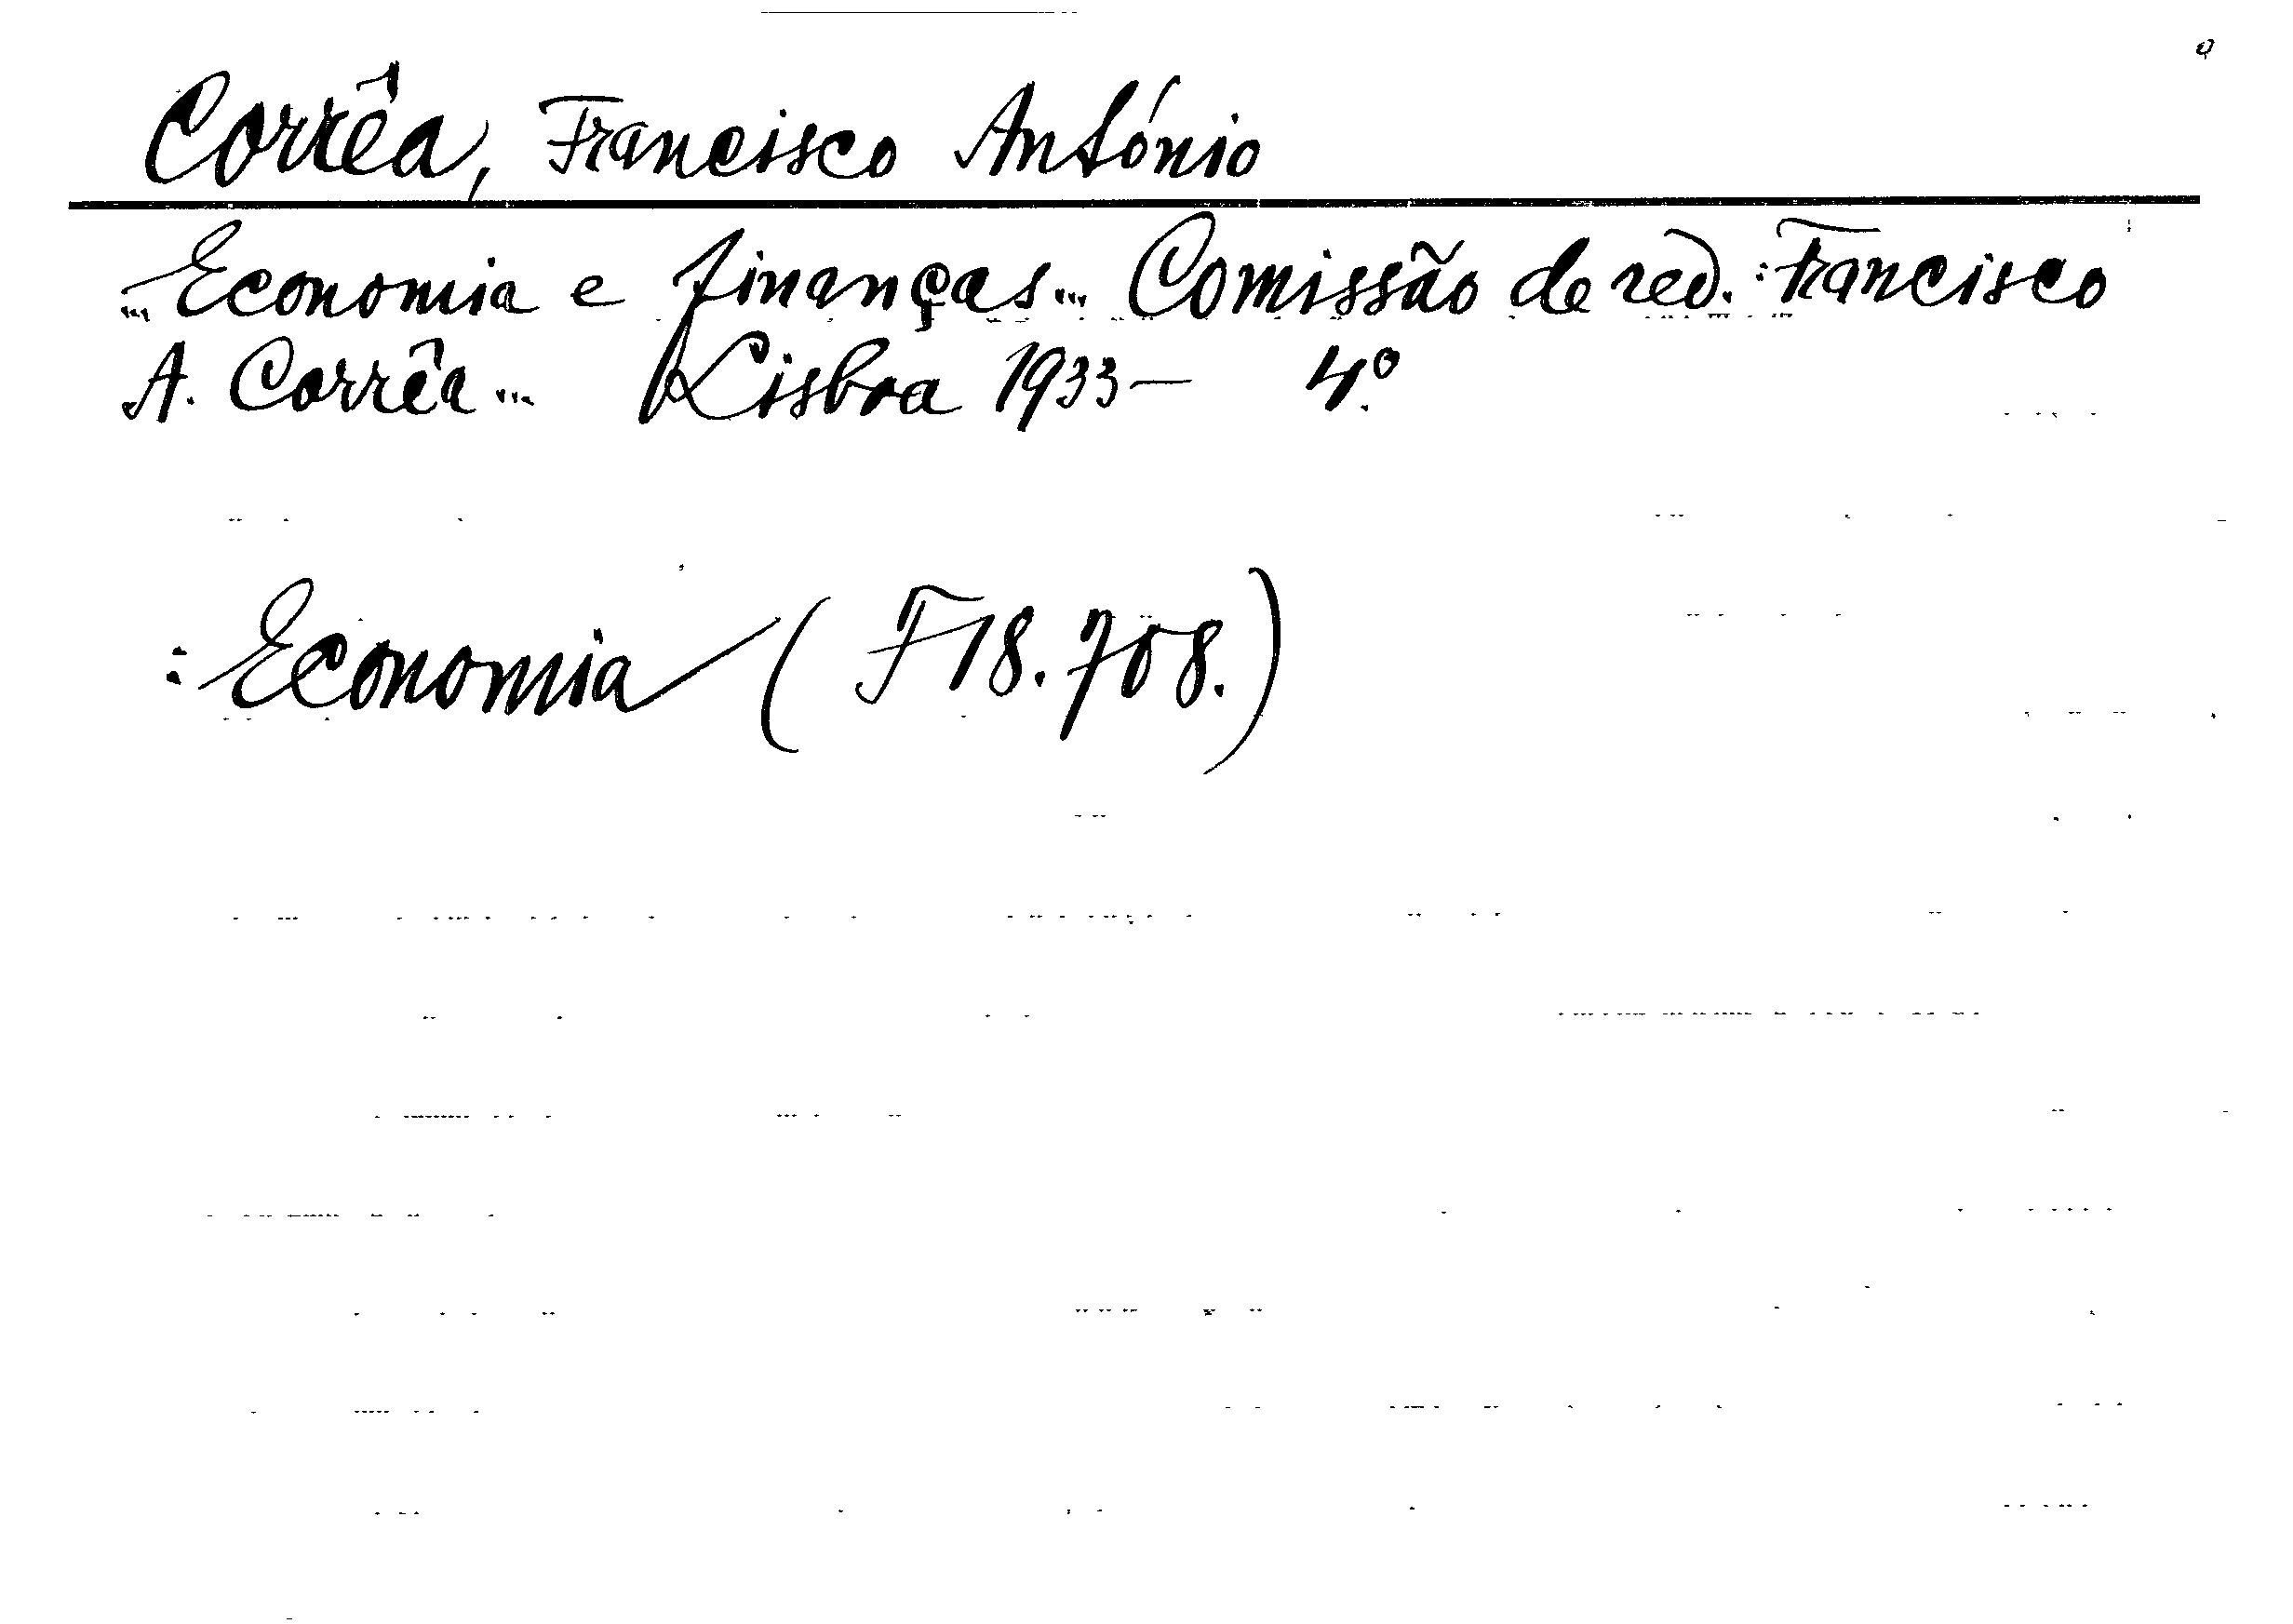 Corrêa, Francisco António
... Economia e finanças... Comissão de red.: Francisco
A. Corrêa... Lisboa 1933— 4.º
: Economia (F 18.708.)